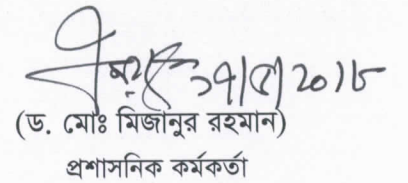 ১৭/৫/2018
(ড. মোঃ মিজানুর রহমান)
প্রশাসনিক কর্মকর্তা